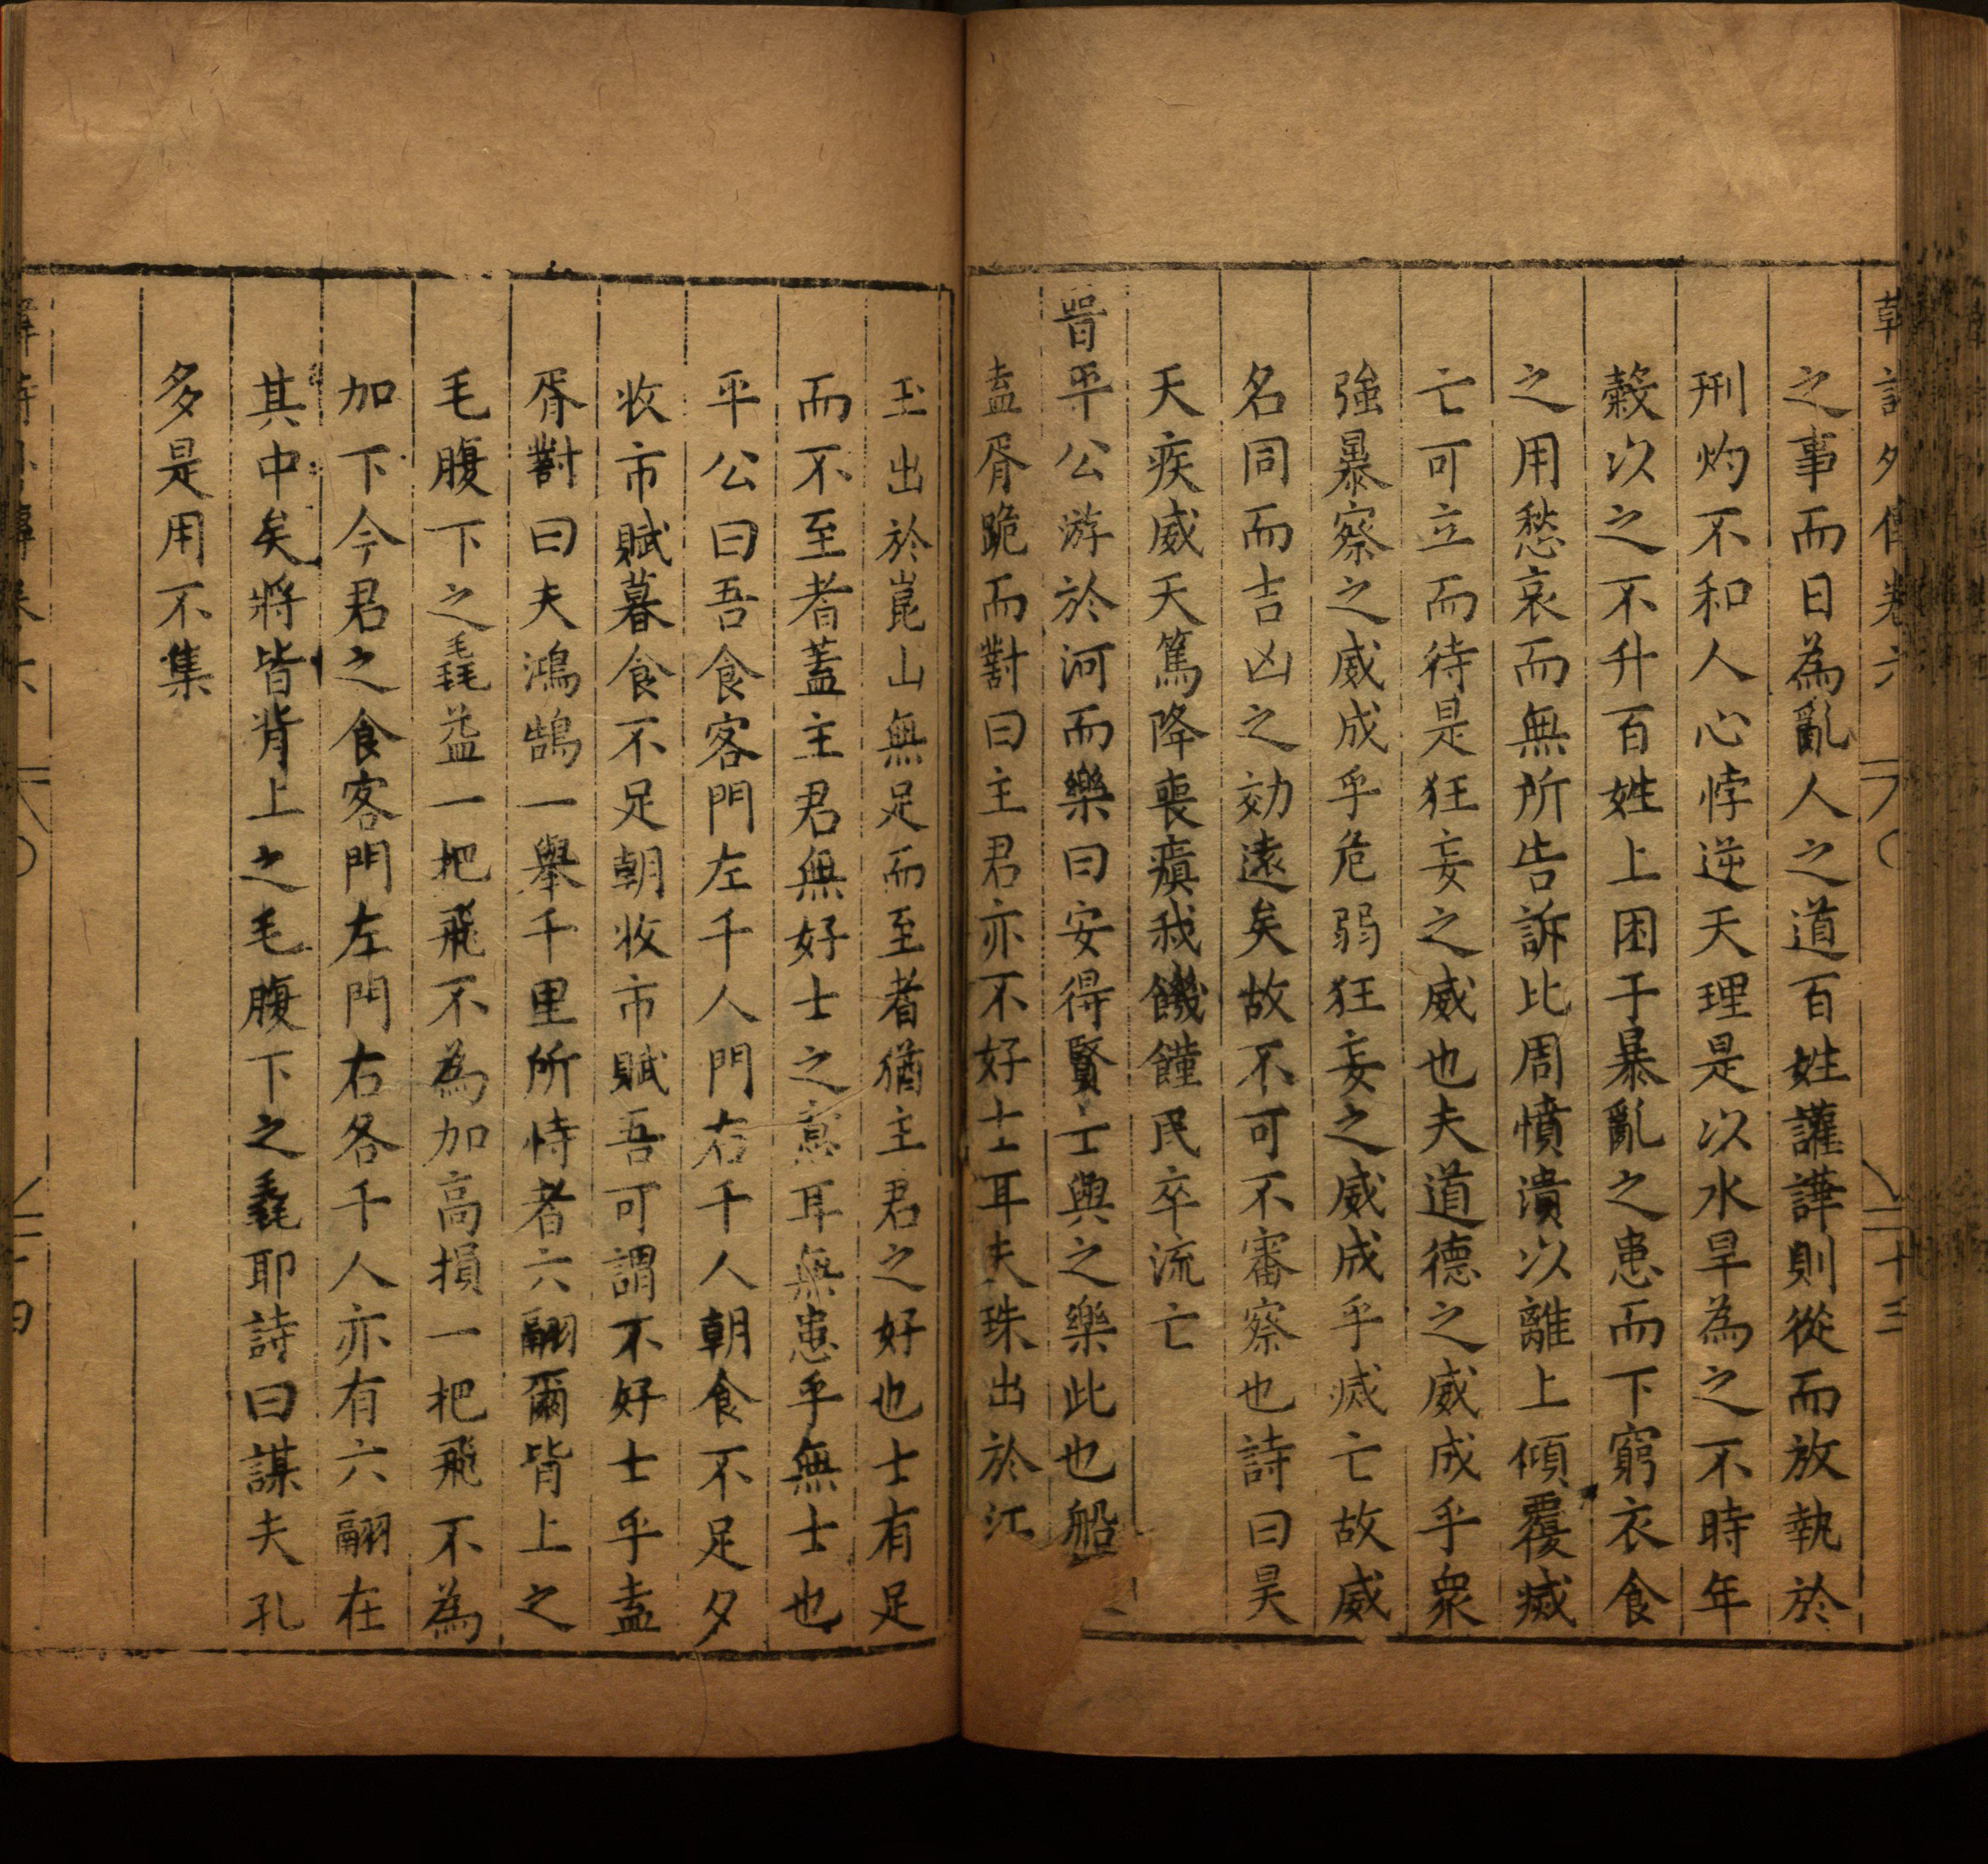 韓詩外傳卷六
十三
之事而日為亂人之道百姓讙譁則從而放執於
刑灼不和人心悖逆天理是以水旱為之不時年
糓以之不升百姓上困于暴亂之患而下窮衣食
之用愁哀而無所告訴比周憤潰以離上傾覆㓕
亡可立而待是狂妄之威也夫道德之威成乎衆
強暴察之威成乎危弱狂妄之威成乎㓕亡故威
名同而吉凶之効遠矣故不可不審察也詩曰昊
天疾威天篤降喪瘨我饑饉民卒流亡
晋平公游於河而樂曰安得賢士與之樂此也船
盍胥跪而對曰主君亦不好士耳夫珠出於江
玉出於崑山無足而至者猶主君之好也士有足
而不至者蓋主君無好士之意耳無患乎無士也
平公曰吾食客門左千人門右千人朝食不足夕
收市賦暮食不足朝收市賦吾可謂不好士乎盍
胥對曰夫鴻鵠一舉千里所恃者六翮爾背上之
毛腹下之毳益一把飛不為加高損一把飛不為
加下今君之食客門左門右各千人亦有六翮在
其中矣將皆背上之毛腹下之毳耶詩曰謀夫孔
多是用不集